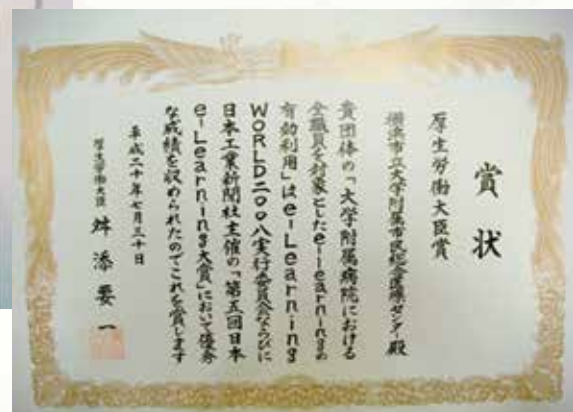 賞状
厚生労働大臣賞
横浜市立大学附属市民総合医療センター殿
貴団体の「大学附属病院における
全職員を対象としたe-Learningの
有効利用」はe-Learning
WORLD二〇〇八実行委員会ならびに
日本工業新聞社主催の「第五回日本
e-Learning大賞」において優秀
な成績を収められたのでこれを賞します
平成二十年七月三十日
厚生労働大臣 舛添要一